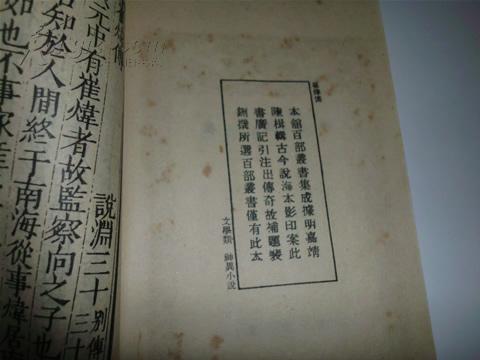 崔煒傳
本館百部叢書集成據明嘉靖
陳楫輯古今說海本影印案此
書廣記引注出傳奇故補題裴
鉶撰所選百部叢書僅有此本
文學類 神異小說
說淵三十 別傳三十
煒傳
元中有崔煒者故監察向之子也
知於人間終于南海從事煒居
如也不事家產